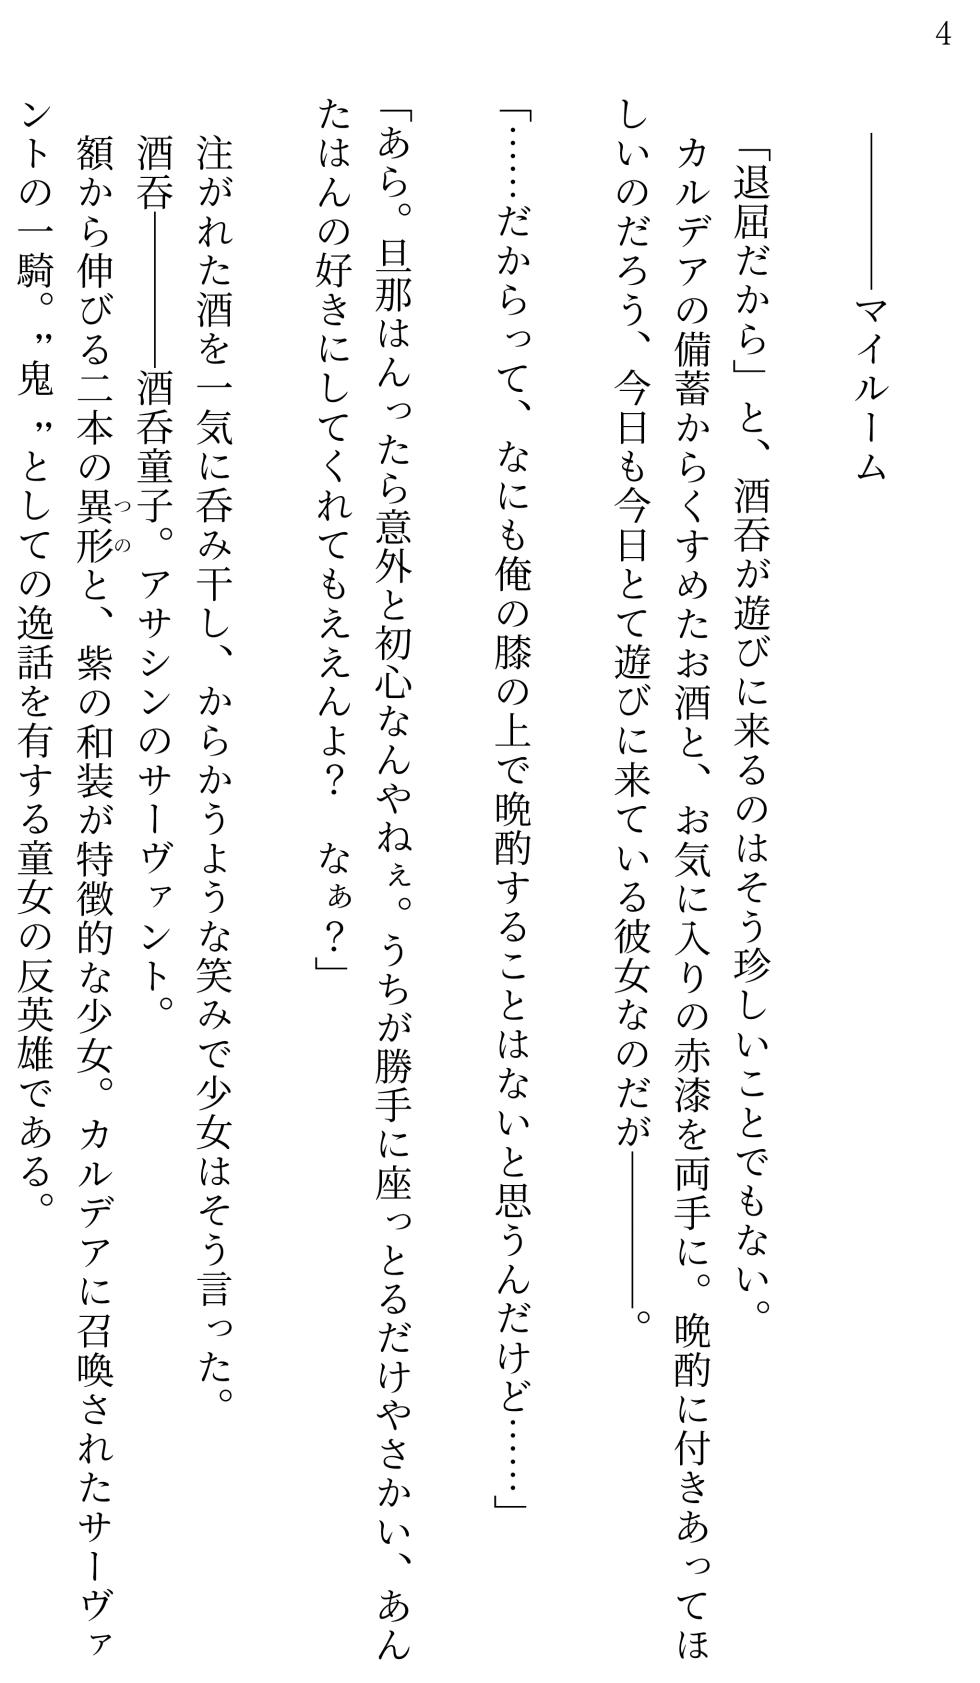 4
――――マイルーム
「退屈だから」と、酒呑が遊びに来るのはそう珍しいことでもない。
カルデアの備蓄からくすめたお酒と、お気に入りの赤漆を両手に。晩酌に付きあってほ
しいのだろう、今日も今日とて遊びに来ている彼女なのだが――――。
「……だからって、なにも俺の膝の上で晩酌することはないと思うんだけど……」
「あら。旦那はんったら意外と初心なんやねぇ。うちが勝手に座っとるだけやさかい、あん
たはんの好きにしてくれてもええんよ？　なぁ？」
注がれた酒を一気に呑み干し、からかうような笑みで少女はそう言った。
酒呑――――酒呑童子。アサシンのサーヴァント。
額から伸びる二本の異形つのと、紫の和装が特徴的な少女。カルデアに召喚されたサーヴァ
ントの一騎。”鬼”としての逸話を有する童女の反英雄である。